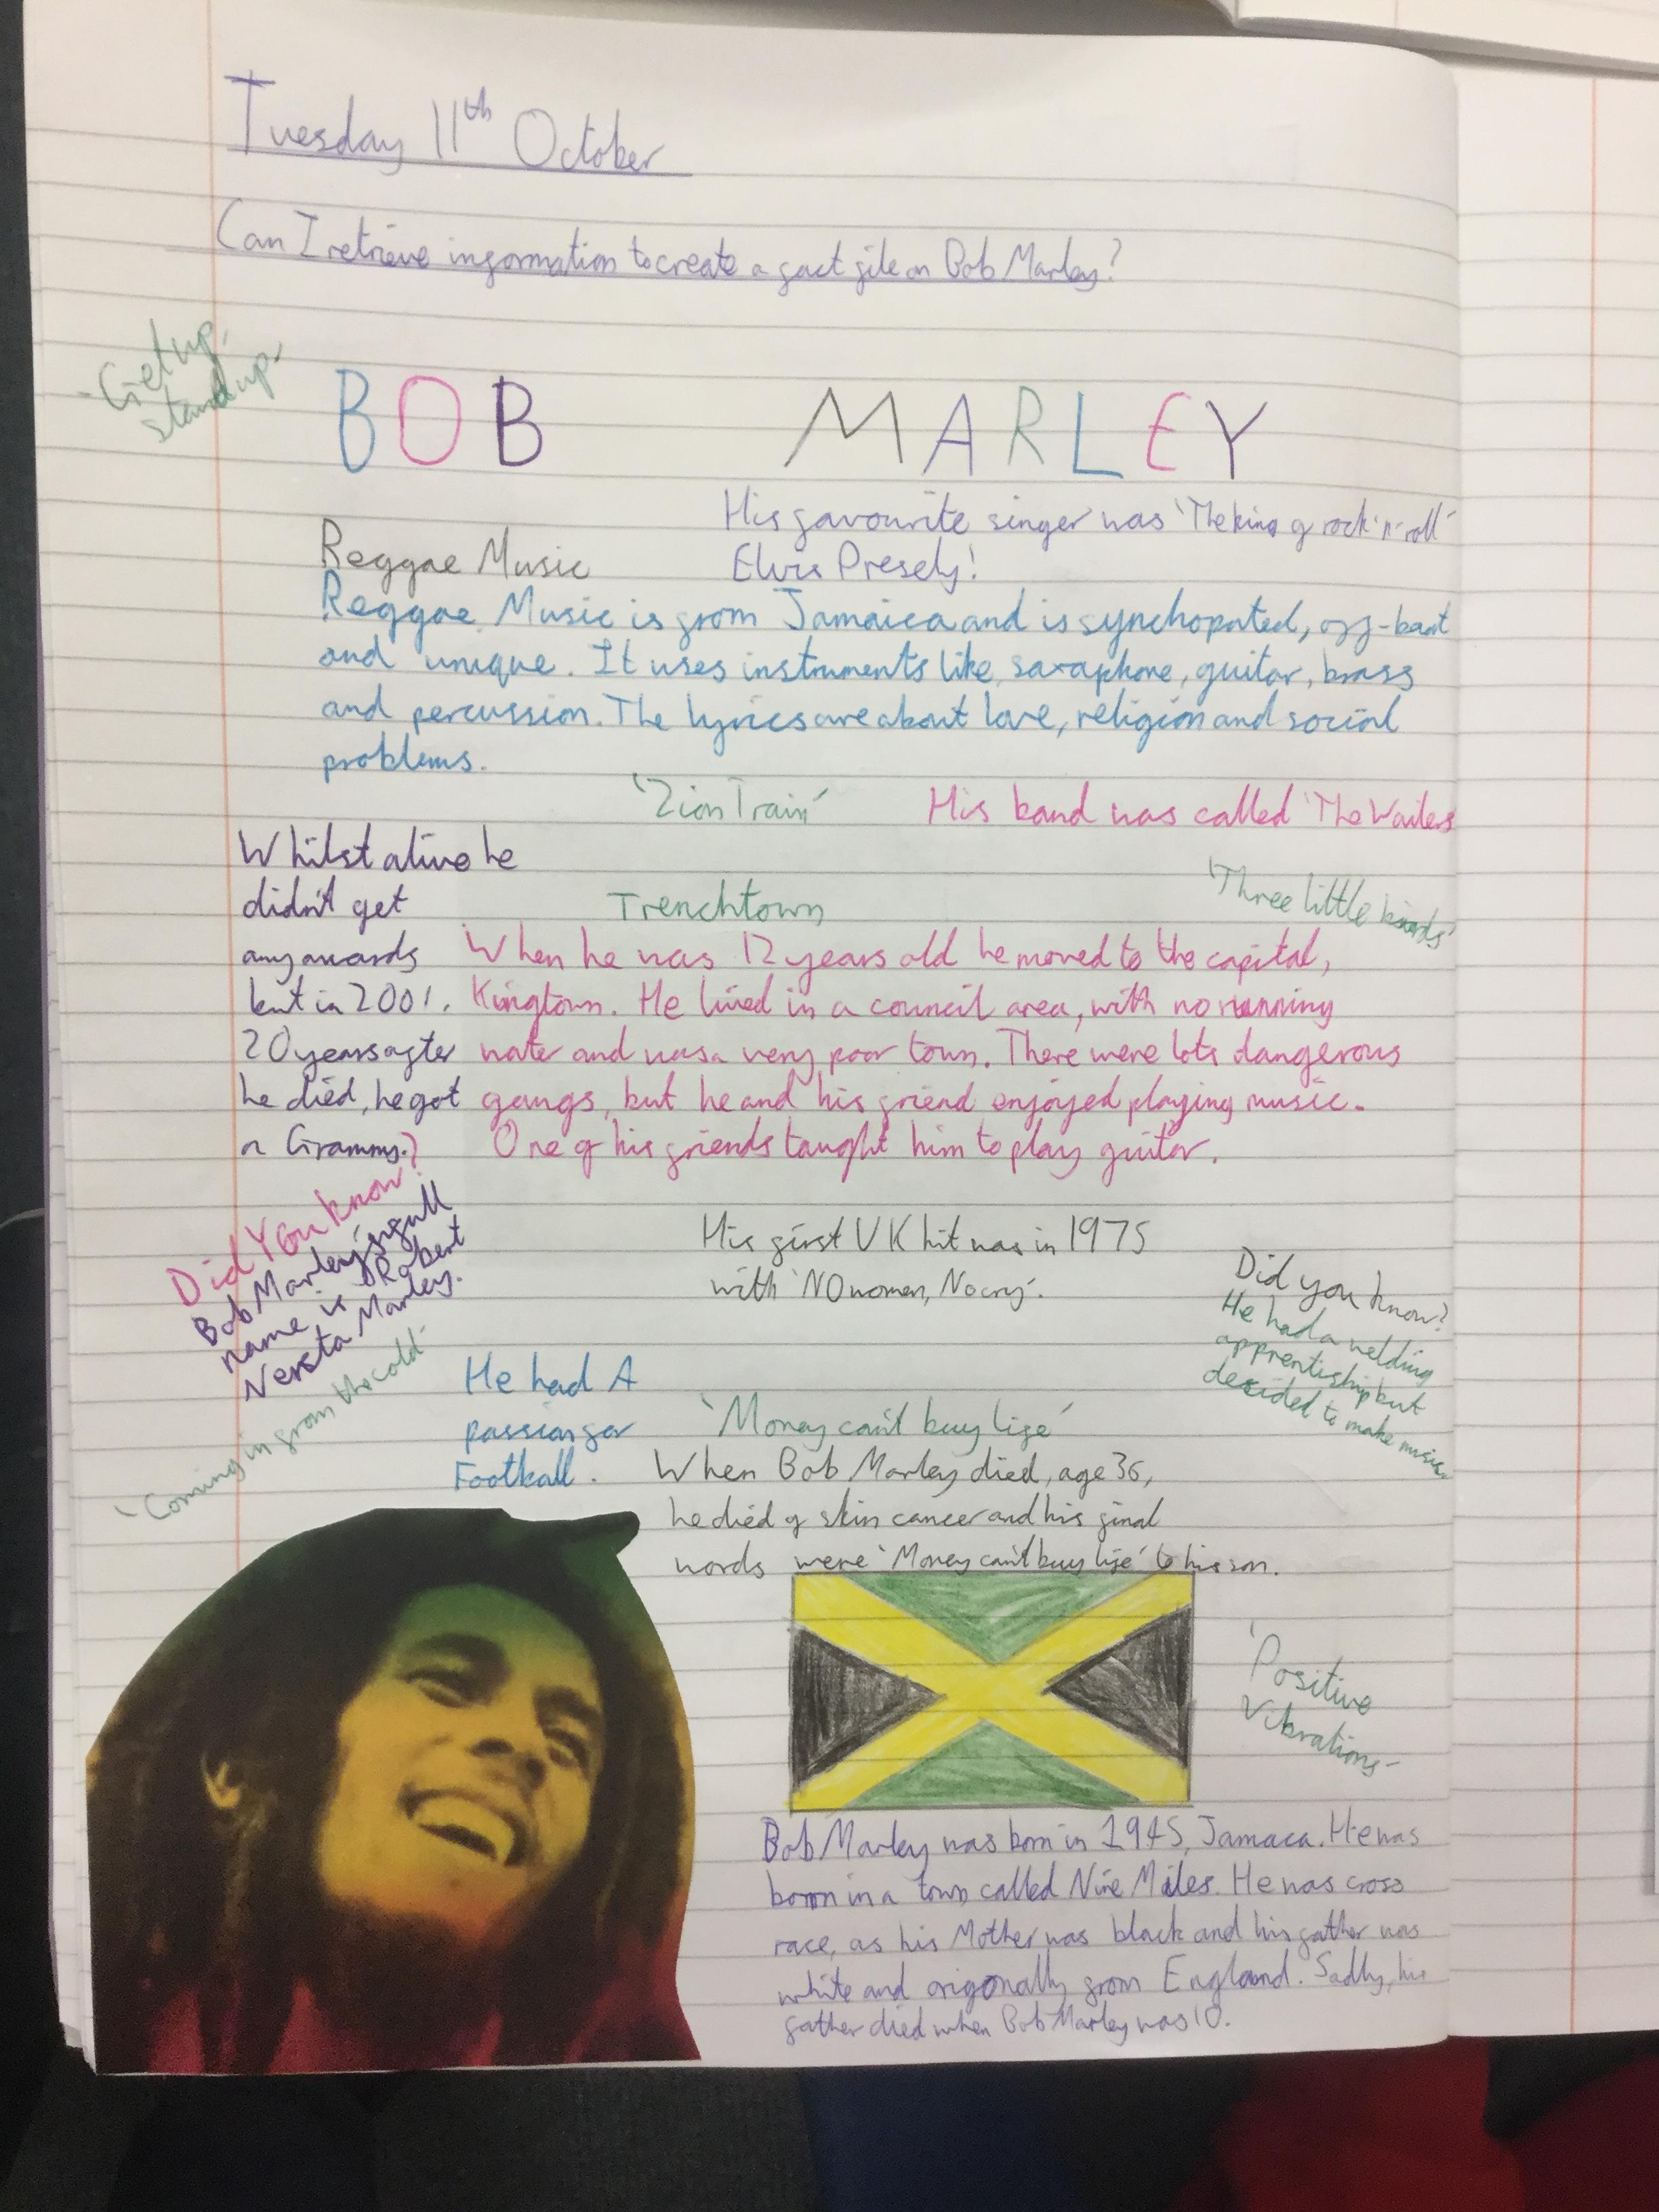 Tuesday 11th October
Can I retrieve information to create a fact file on Bob Marley?
'Get up,
stand up'
BOB MARLEY
His favourite singer was 'The king of rock 'n' roll'
Elvis Presely!
Reggae Music
Reggae Music is from Jamaica and is synchopated, off-beat
and unique. It uses instruments like saxaphone, guitar, brass
and percussion. The lyrics are about love, religion and social
problems.
'Zion Train'
His band was called 'The Wailers
'Three little birds'
Whilst alive he
didn't get
any awards
but in 2001,
20 years after
he died, he got
a Grammy.
Trenchtown
When he was 12 years old he moved to the capital,
Kingtown. He lived in a council area, with no running
water and was a very poor town. There were lots dangerous
gangs, but he and his friend enjoyed playing music.
One of his friends taught him to play guitar.
Did You know?
Bob Marley's full
name is Robert
Nersta Marley.
'Coming in from the cold'
His first UK hit was in 1975
with 'NO women, No cry'.
Did you know?
He had a welding
apprentiship but
decided to make music.
He had A
passion for
Football.
'Money can't buy life'
When Bob Marley died, age 36,
he died of skin cancer and his final
words were 'Money can't buy life' to his son.
'Positive
Vibrations'
Bob Marley was born in 1945, Jamaca. He was
born in a town called Nine Miles. He was cross
race, as his Mother was black and his father was
white and origonally from England. Sadly, his
father died when Bob Marley was 10.